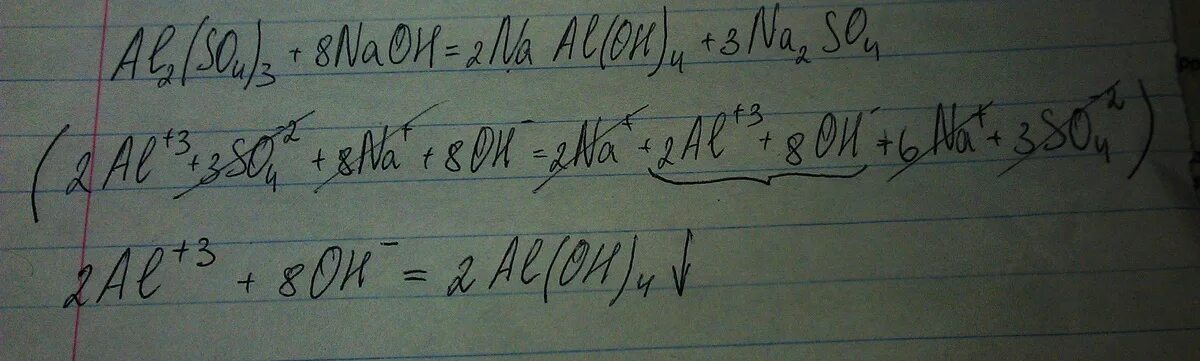 Al₂(SO₄)₃ + 8NaOH = 2Na Al(OH)₄ + 3Na₂SO₄
(2Al⁺³ + 3SO₄⁻² + 8Na⁺ + 8OH⁻ = 2Na⁺ + 2Al⁺³ + 8OH⁻ + 6Na⁺ + 3SO₄⁻²)
2Al⁺³ + 8OH⁻ = 2Al(OH)₄↓